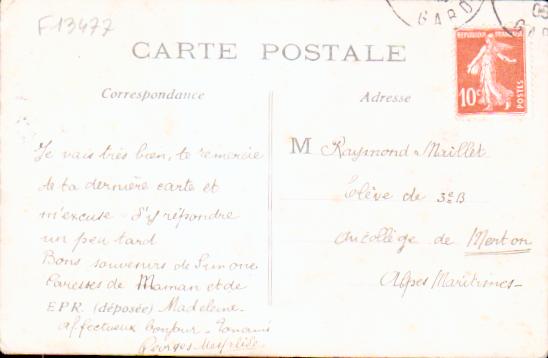 F13477
GARD
CARTE POSTALE
REPUBLIQUE FRANÇAISE
10c
POSTES
Correspondance
Adresse
Je vais très bien, te remercie
de ta dernière carte et
m'excuse d'y répondre
un peu tard
Bons souvenirs de Simone
Caresses de Maman et de
E P R. (déposée) Madeleine.
affectueux bonjour
Georges
M Raymond Maillet
Elève de 3e B
au collège de Menton
Alpes Maritimes